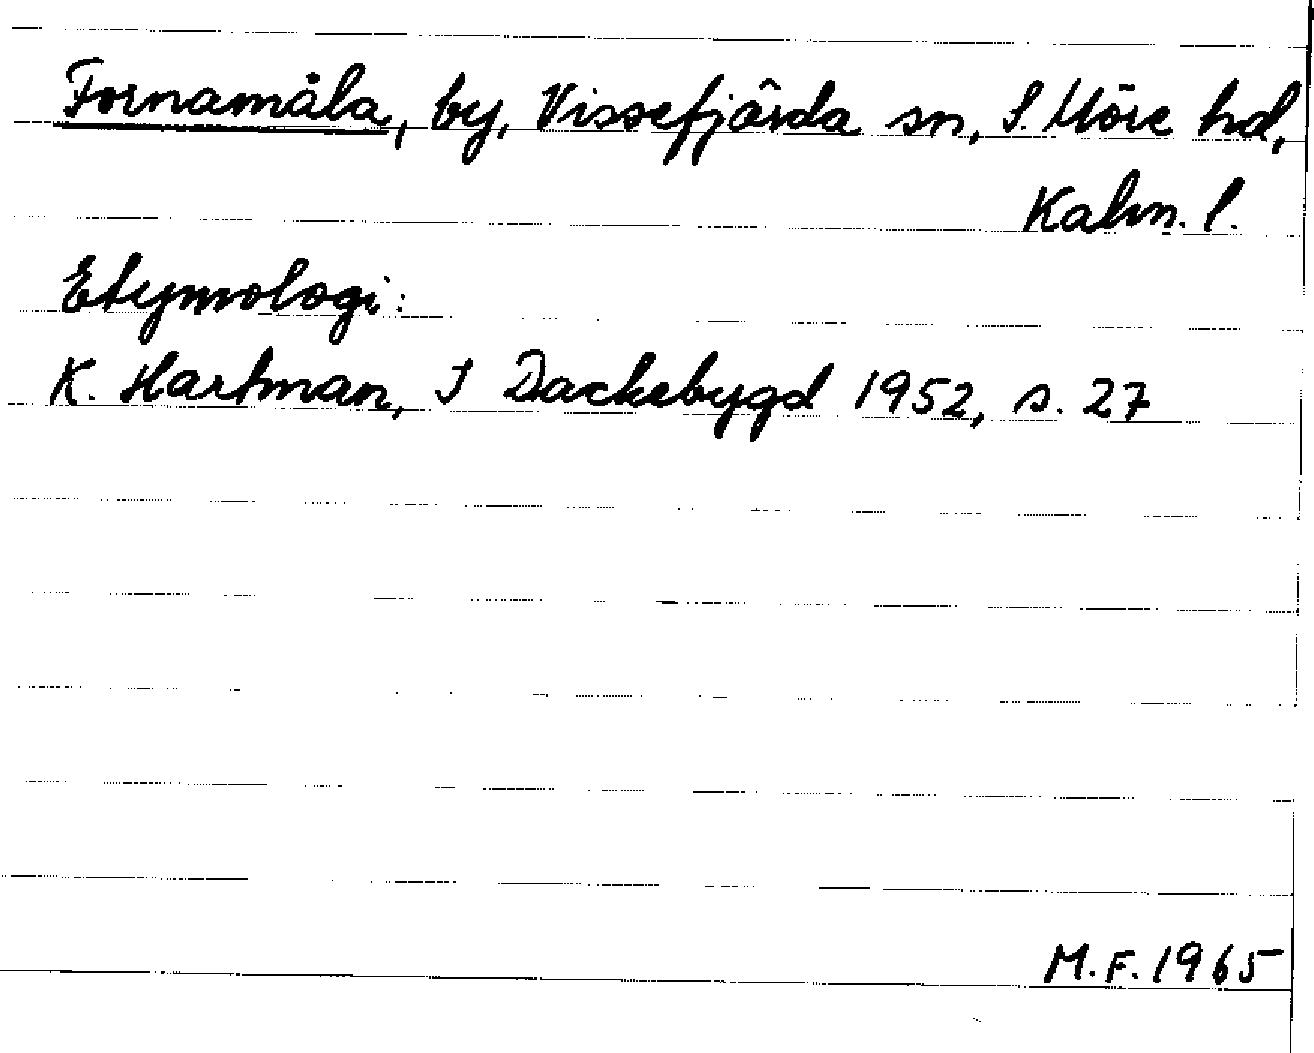 Fornamåla, by, Vissefjärda sn, S. Möre hd,
Kalm. l.
Etymologi:
K. Hartman, I Dackebygd 1952, s. 27
M.F. 1965